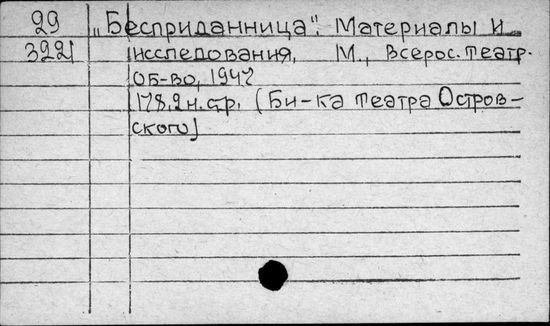 29 „Бесприданница". Материалы и
3221 исследования. М., Всерос. театр.
об-во, 1947
178,2н.стр. (Би-ка театра Остров-
ского)